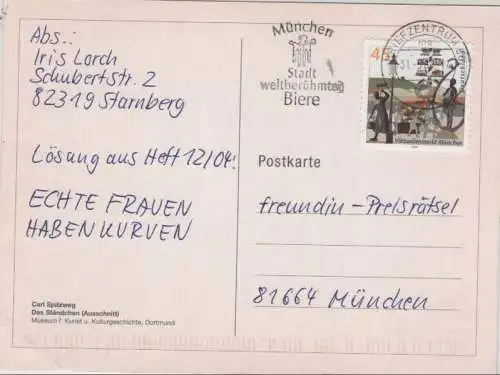 Abs.:
Iris Lorch
Schubertstr. 2
82319 Starnberg
Lösung aus Heft 12/04:
ECHTE FRAUEN
HABEN KURVEN
Carl Spitzweg
Das Ständchen (Ausschnitt)
Museum f. Kunst u. Kulturgeschichte, Dortmund
München
Stadt
weltberühmter
Biere
BRIEFZENTRUM
45
Viktualienmarkt München
Postkarte
freundin-Preisrätsel
81664 München